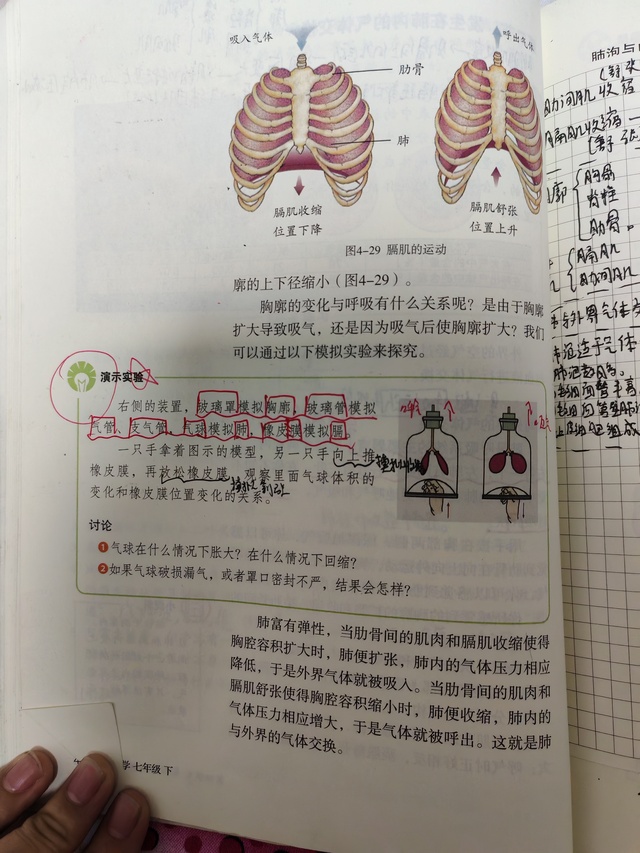 吸入气体
呼出气体
肋骨
肺
膈肌收缩
位置下降
膈肌舒张
位置上升
图4-29 膈肌的运动
廓的上下径缩小（图4-29）。
胸廓的变化与呼吸有什么关系呢？是由于胸廓
扩大导致吸气，还是因为吸气后使胸廓扩大？我们
可以通过以下模拟实验来探究。
演示实验
右侧的装置，玻璃罩模拟胸廓，玻璃管模拟
气管、支气管，气球模拟肺，橡皮膜模拟膈。
一只手拿着图示的模型，另一只手向上推
橡皮膜，再放松橡皮膜，观察里面气球体积的
变化和橡皮膜位置变化的关系。
讨论
❶气球在什么情况下胀大？在什么情况下回缩？
❷如果气球破损漏气，或者罩口密封不严，结果会怎样？
肺富有弹性，当肋骨间的肌肉和膈肌收缩使得
胸腔容积扩大时，肺便扩张，肺内的气体压力相应
降低，于是外界气体就被吸入。当肋骨间的肌肉和
膈肌舒张使得胸腔容积缩小时，肺便收缩，肺内的
气体压力相应增大，于是气体就被呼出。这就是肺
与外界的气体交换。
学七年级 下
肋间肌收缩
膈肌收缩
胸骨
脊柱
肋骨
膈肌
肋间肌